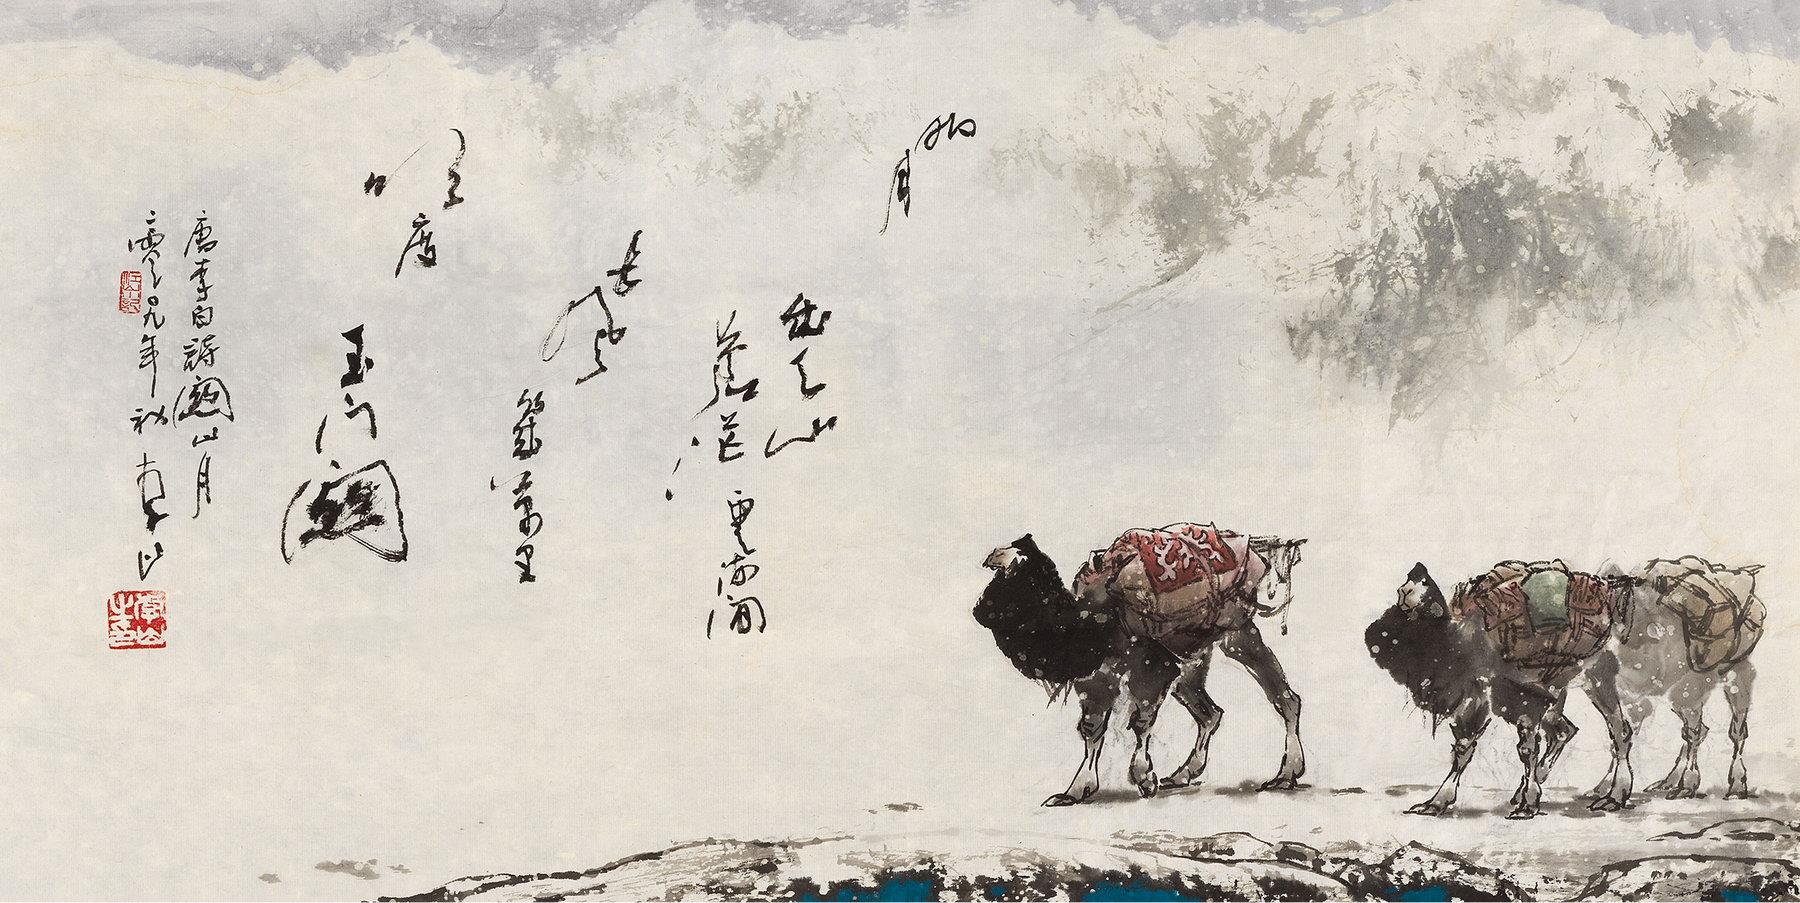 明月
出天山
蒼茫
雲海間
長風
幾萬里
吹度
玉門關
唐李白詩關山月
年秋 李山